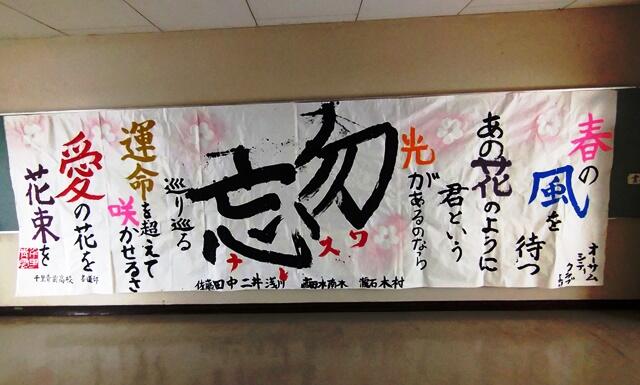 春の
風を
待つ
オサム
シティ
クラブより
あの花のように
君という
光があるのなら
勿忘
ワスレナ
巡り巡る
運命を超えて
咲かせるさ
愛の花を
花束を
田中 二井 浅川
木村
書道部